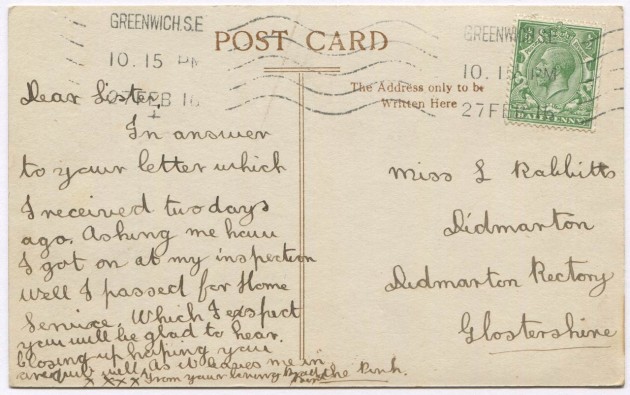 GREENWICH.S.E
10.15 PM
27 FEB 16
POST CARD
GREENWICH.S.E
10.15 PM
27 FEB
HALFPENNY
The Address only to be
Written Here
Dear Sister,
In answer
to your letter which
I received two days
ago. Asking me how
I got on at my inspection
Well I passed for Home
Service. Which I expect
you will be glad to hear.
Closing up hoping you
are quite well, As it leaves me in
x xxx x From your loving the Pink.
Miss L Rabbitts
Didmarton
Didmarton Rectory
Glostershire